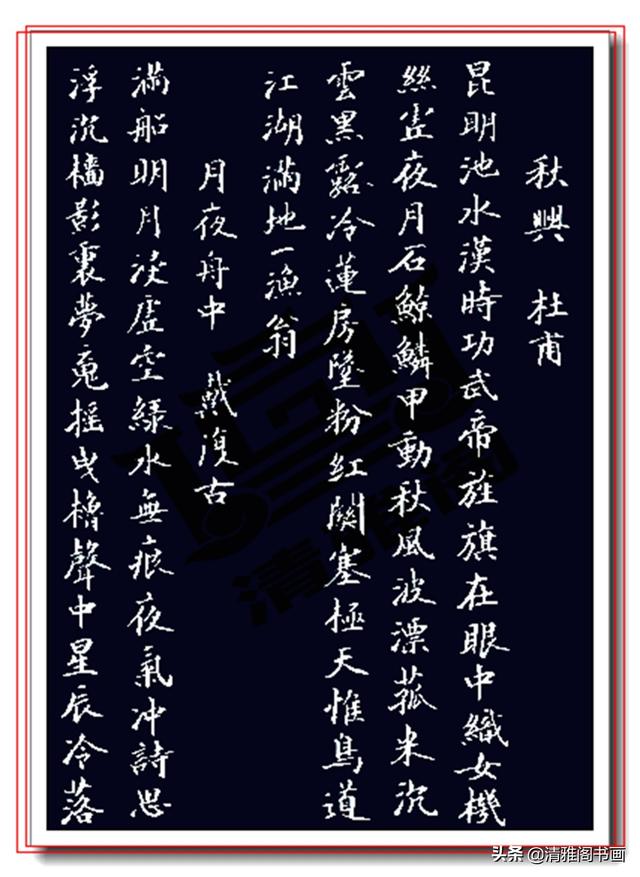 秋興 杜甫
昆明池水漢時功武帝旌旗在眼中織女機
絲虛夜月石鯨鱗甲動秋風波漂菰米沉
雲黑露冷蓮房墜粉紅關塞極天惟鳥道
江湖滿地一漁翁
月夜舟中 戴復古
滿船明月浸虛空綠水無痕夜氣冲詩思
浮沉檣影裏夢魂搖曳櫓聲中星辰冷落
清雅阁
头条 @清雅阁书画